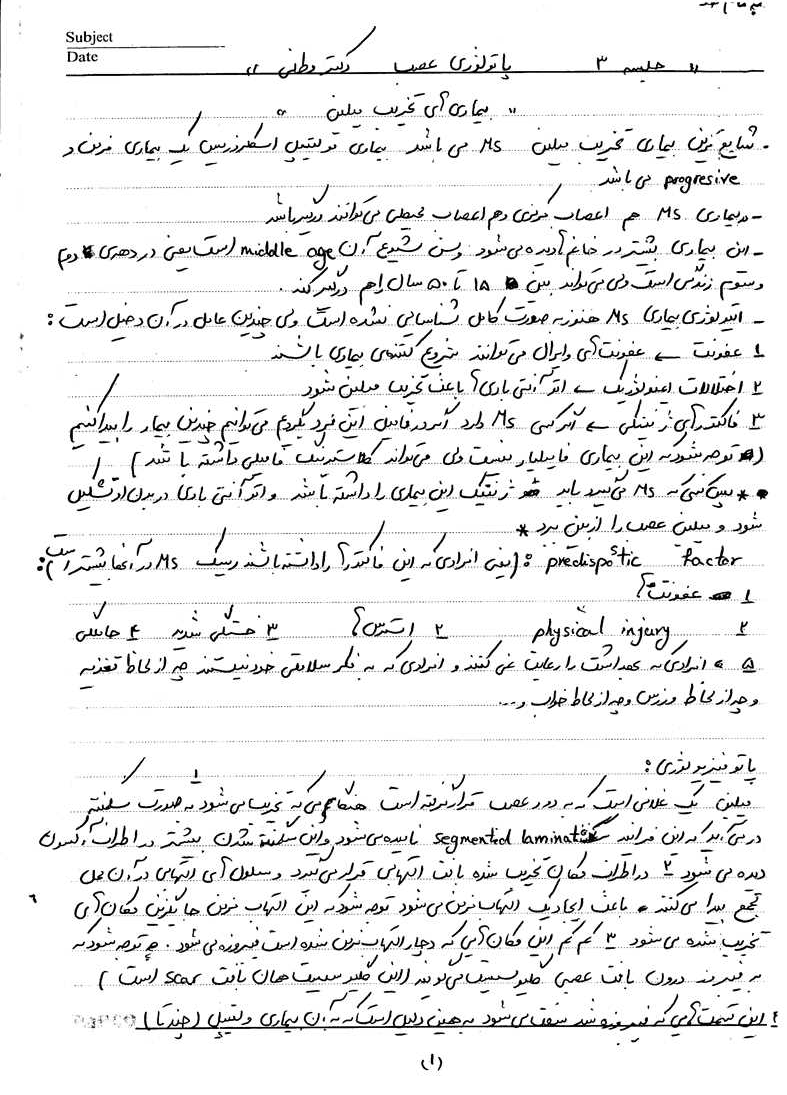 Subject
Date
" جلسه ۳ پاتولوژی عصب دکتر وطنی "
" بیماری های تخریب میلین "
- شایع ترین بیماری تخریب میلین MS می باشد بیماری مولتیپل اسکلروزیس یک بیماری مزمن و
progresive می باشد
- در بیماری MS هم اعصاب مرکزی و هم اعصاب محیطی می توانند درگیر باشد
- این بیماری بیشتر در خانم ها دیده می شود وسن شیوع آن middle age است یعنی در دهه ی دوم
و سوم زندگی است ولی می تواند بین ۱۵ تا ۵۰ سال را هم درگیر کند.
- اتیولوژی بیماری MS هنوز به صورت کامل شناسایی نشده است ولی چندین عامل در آن دخیل است:
۱ عفونت ← عفونت های وایرال می توانند شروع کننده ی بیماری باشند
۲ اختلالات ایمنولوژیک ← اتو آنتی بادی ها باعث تخریب میلین شود
۳ فاکتورهای ژنتیکی ← اگر کسی MS دارد اگر در فامیل این فرد بگردیم می توانیم چندین بیمار را پیدا کنیم
( توجه شود که این بیماری فامیلیار نیست ولی می تواند کلاسترینگ فامیلی داشته باشد )
* پس کسی که MS می گیرد باید ژنتیک این بیماری را داشته باشد و اتو آنتی بادی در بدن او تشکیل
شود و میلین عصب را از بین ببرد *
predispostic factor : (یعنی افرادی که این فاکتورها را داشته باشند ریسک MS در آنها بیشتر است):
۱ عفونت ها
۲ physical injury ۲ استرس ها ۳ خستگی شدید ۴ حاملگی
۵ افرادی که بهداشت را رعایت نمی کنند و افرادی که به فکر سلامتی خود نیستند چه از لحاظ تغذیه
و چه از لحاظ ورزش و چه از لحاظ خواب و...
پاتوفیزیولوژی:
۱ میلین یک غلافی است که به دور عصب قرار گرفته است هنگامی که تخریب می شود به صورت سگمنته
در می آید که این فرایند segmented laminat نامیده می شود و این سگمنته شدن بیشتر در اطراف آکسون
دیده می شود ۲ در اطراف مکان تخریب شده بافت التهابی قرار می گیرد و سلول های التهابی در آن محل
تجمع پیدا می کنند و باعث ایجاد یک التهاب مزمن می شود توجه شود که این التهاب مزمن جایگزین مکان های
تخریب شده می شود ۳ کم کم این مکان هایی که دچار التهاب مزمن شده است فیبروزه می شود. توجه شود که
به فیبروز درون بافت عصبی گلیوسیس می گویند (این گلیوسیس همان بافت scar است )
۴ این قسمت هایی که فیبروزه شد سفت می شود به همین دلیل است که به آن بیماری مولتیپل (چندتا)
(۱)